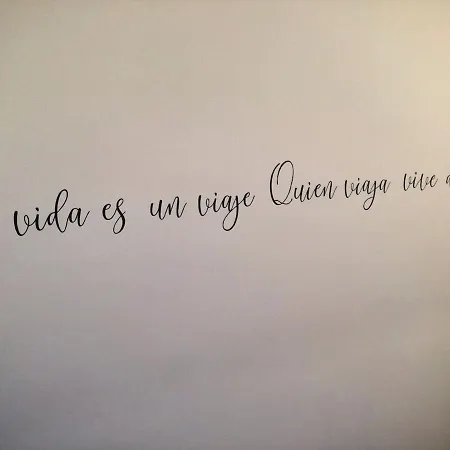 vida es un viaje Quien viaja vive